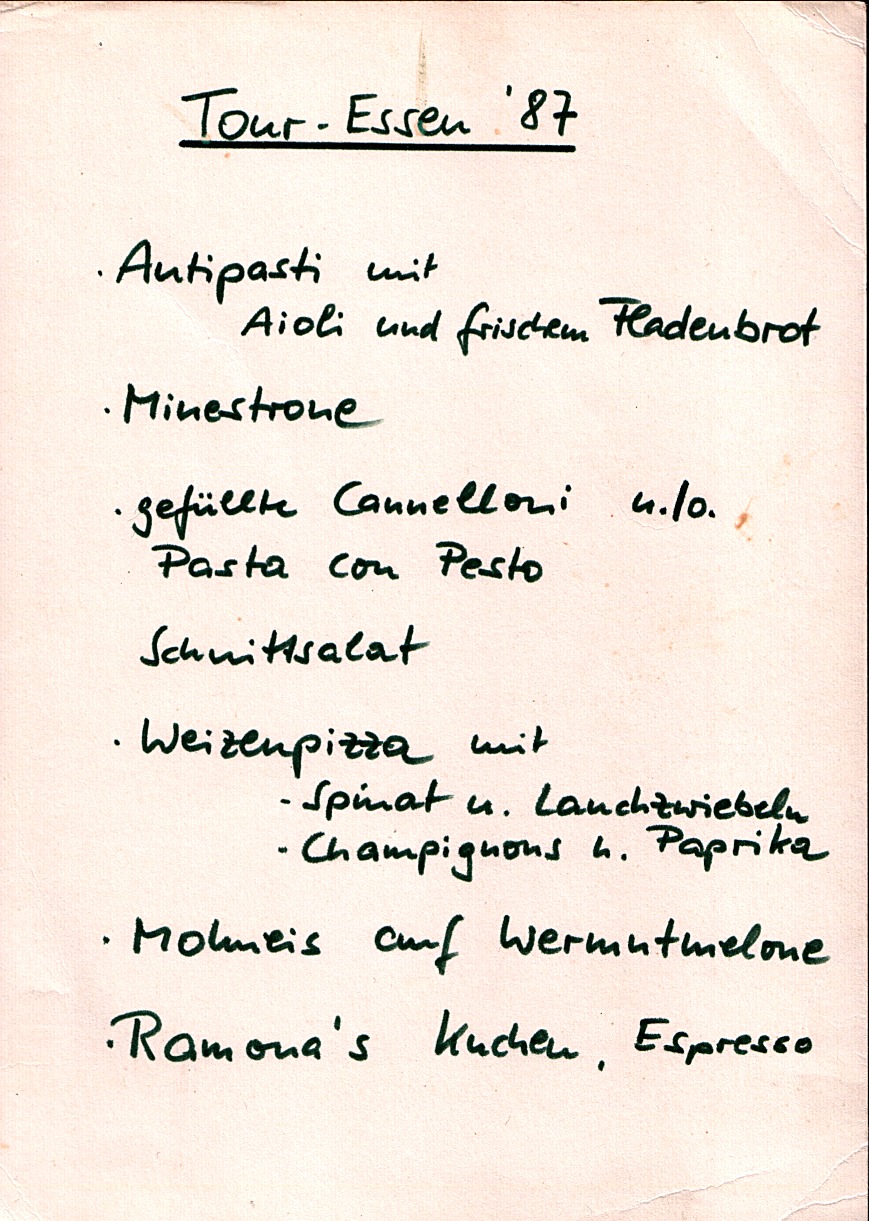 Tour-Essen '87
· Antipasti mit
Aioli und frischem Fladenbrot
· Minestrone
· gefüllte Cannelloni u./o.
Pasta con Pesto
Schnittsalat
· Weizenpizza mit
- Spinat u. Lauchzwiebeln
- Champignons u. Paprika
· Mohneis auf Wermutmelone
· Ramona's Kuchen, Espresso